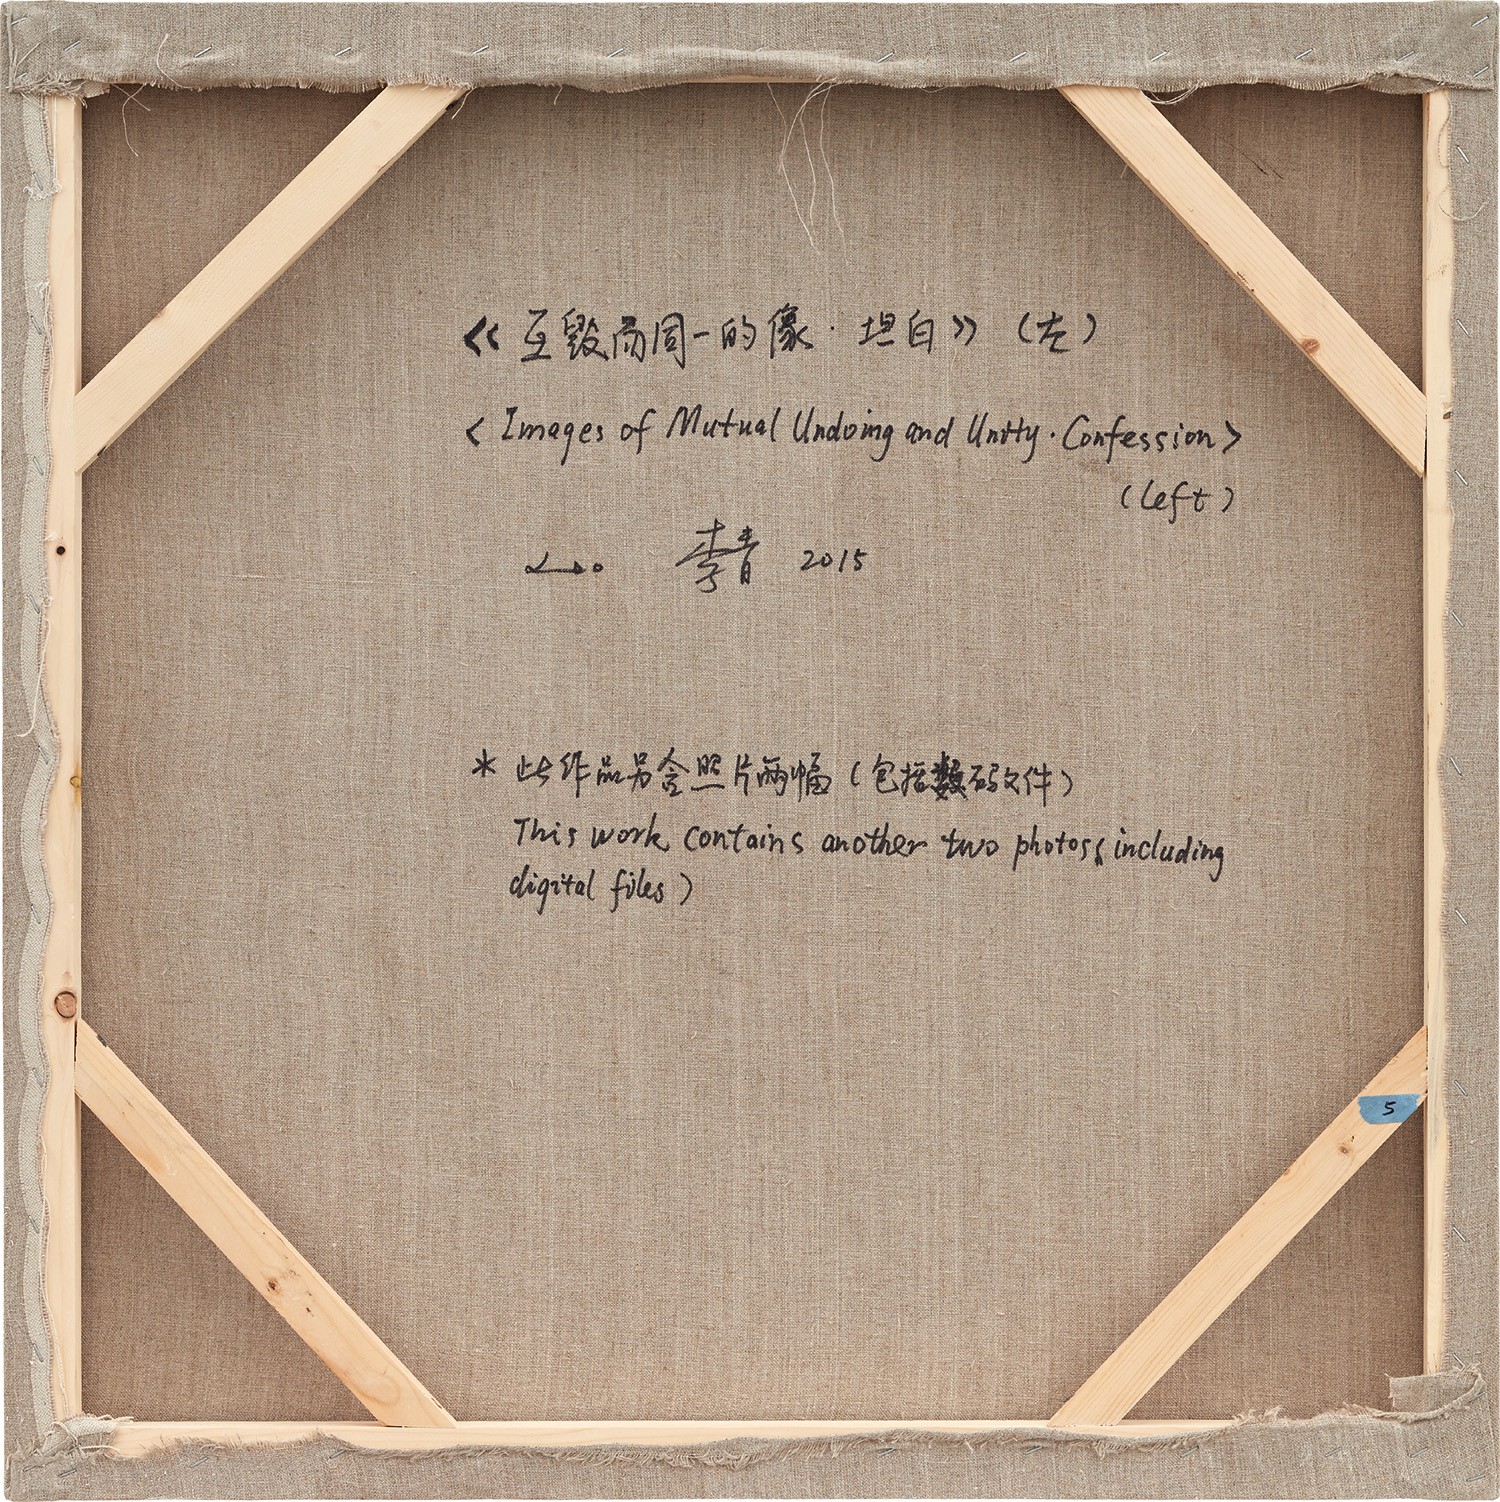 《互毁而同一的像·坦白》（左）
<Images of Mutual Undoing and Unity·Confession>
(left)
李青 2015
* 此作品另含照片两幅（包括数码文件）
This work contains another two photos(including
digital files)
5